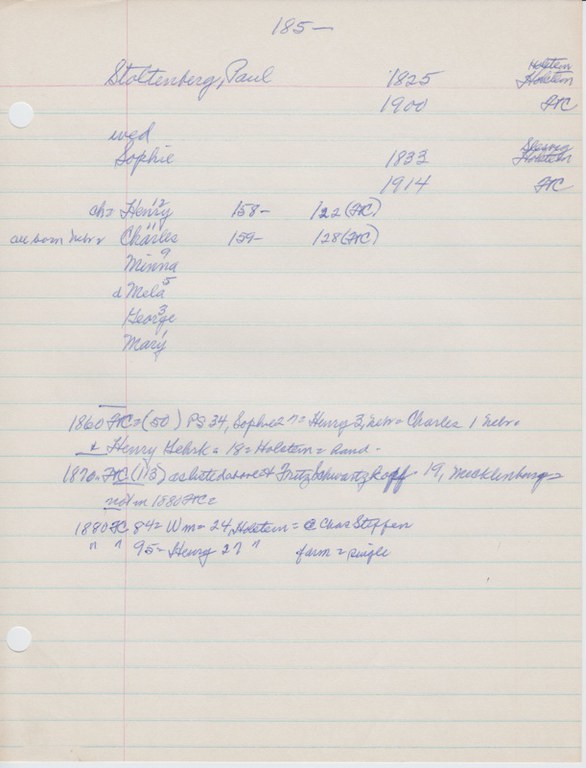 185-
Stoltenberg, Paul 1825 Holstein Holstein
1900 FC
wed
Sophie 1833 Holstein
1914 FC
ch= Henry 12 158- 122 (FC)
all born Nebr Charles 11 159- 128 (FC)
Minna 9
d Mela 5
George 3
Mary 1
1860 FC= (50) PS 34, Sophie 27= Henry 3, Nebr= Charles 1 Nebr.
& Henry 18= Holstein= hand-
1870. FC (113) as listed above & Fritz Schwartzkopf 19, Mecklenburg=
not in 1880 FC=
1880 FC 84= Wm= 24, Holstein= @ Chas Steffen
" " 95= Henry 27 " farm= single